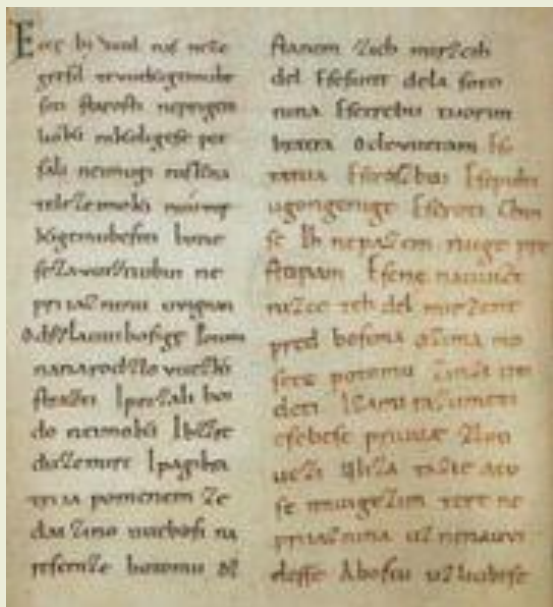 bi detd naſ neze
greſil tevuekigemube
ſiti ſtaroſti neprigem
lióki nikoligeſe
ſali neimugi niſlzna
telezeimoki
kigemubeſiti bone
ſezavuiztiu ne
priiazninu uvignan
Odſzlauuibofige Potom
nanarodzlovuezki
ſtrazti Ipetzali boi
do neimoki Ibzzre
duzemirt Ipagibra
tria pomenem ze
dai zino uuebofi na
reſemze botomu
ſtanem zich mirzcih
del Eſeſunt dela ſoto
nina Eſetrebu tuorim
bratra Oclevuetam Eſe
tatua Eſeraſboi
ugongenige Eſeroti Choi
ſe Ih nepaſem nuge pre
ſtopam Eſene
nizce teh del mirzene
pred bofima mo
ſete potomu zinzi uvi
deti Izami razumeti
eſebeſe priuuae zlou
uezi Uliza tazie aco
ſe imugezim tere ne
priiaznina uznenauvi
deſſe Abofiu uzliubiſe